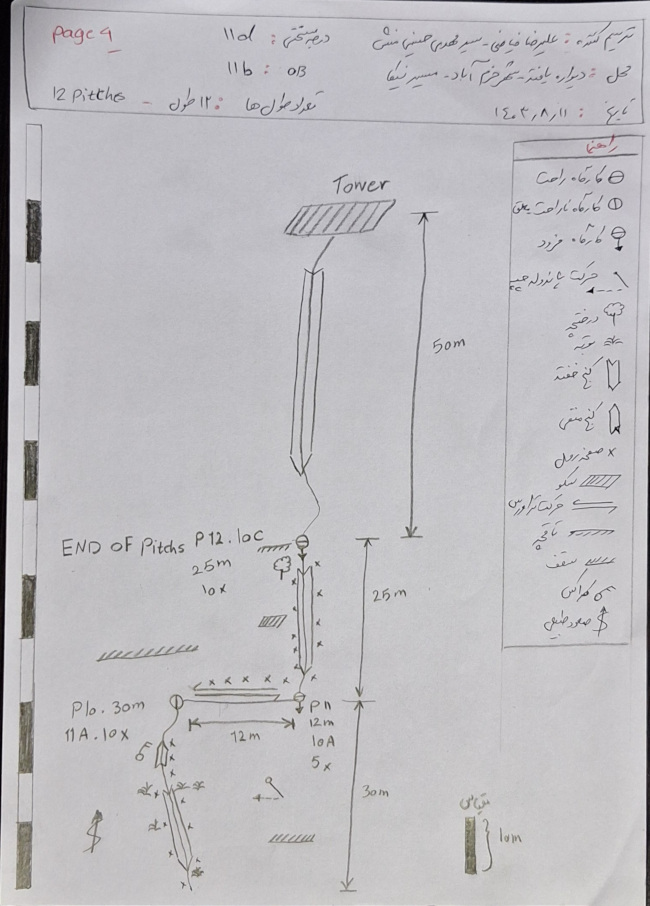 page 4
درجه سختی : 11d
ترسیم کننده : علیرضا فیاضی - سید مهدی حسینی منش
11b : OB
محل : دیواره یافته - شهر خرم آباد - مسیر نیکا
12 Pitches - تعداد طول ها : ۱۲ طول
تاریخ : ۱۴۰۳/۸/۱۱
راهنما
کارگاه راحت
کارگاه ناراحت معلق
کارگاه فرود
حرکت پاندولی
درختچه
بوته
کنج خفته
کنج منفی
صفحه رول
سکو
حرکت تراورس
تاقچه
سقف
گرده
صعود طبیعی
Tower
50m
END OF Pitchs P12. 10C
25m
10x
25m
P10. 30m
11A. 10x
12m
P11
12m
10A
5x
30m
مقیاس
10m